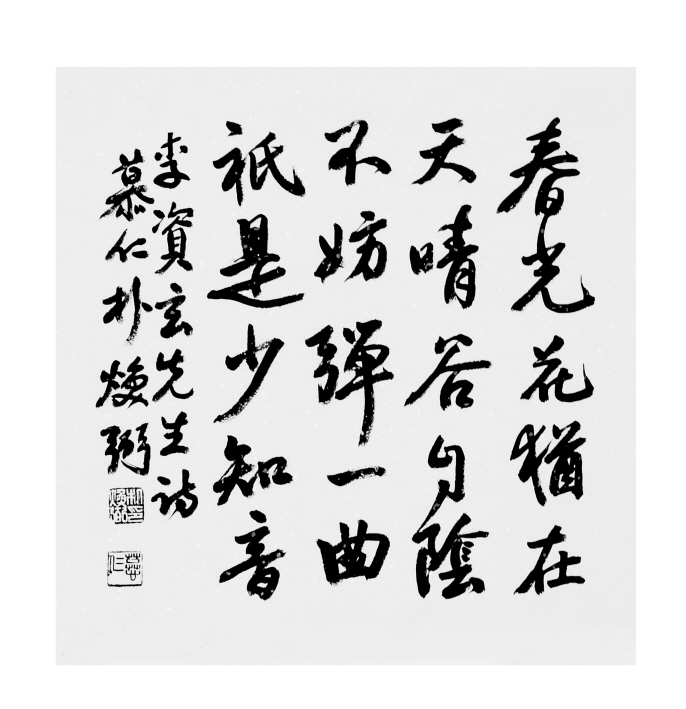 春光花猶在
天晴谷自陰
不妨彈一曲
祇是少知音
李資玄先生詩
慕仁朴煥弼
慕仁